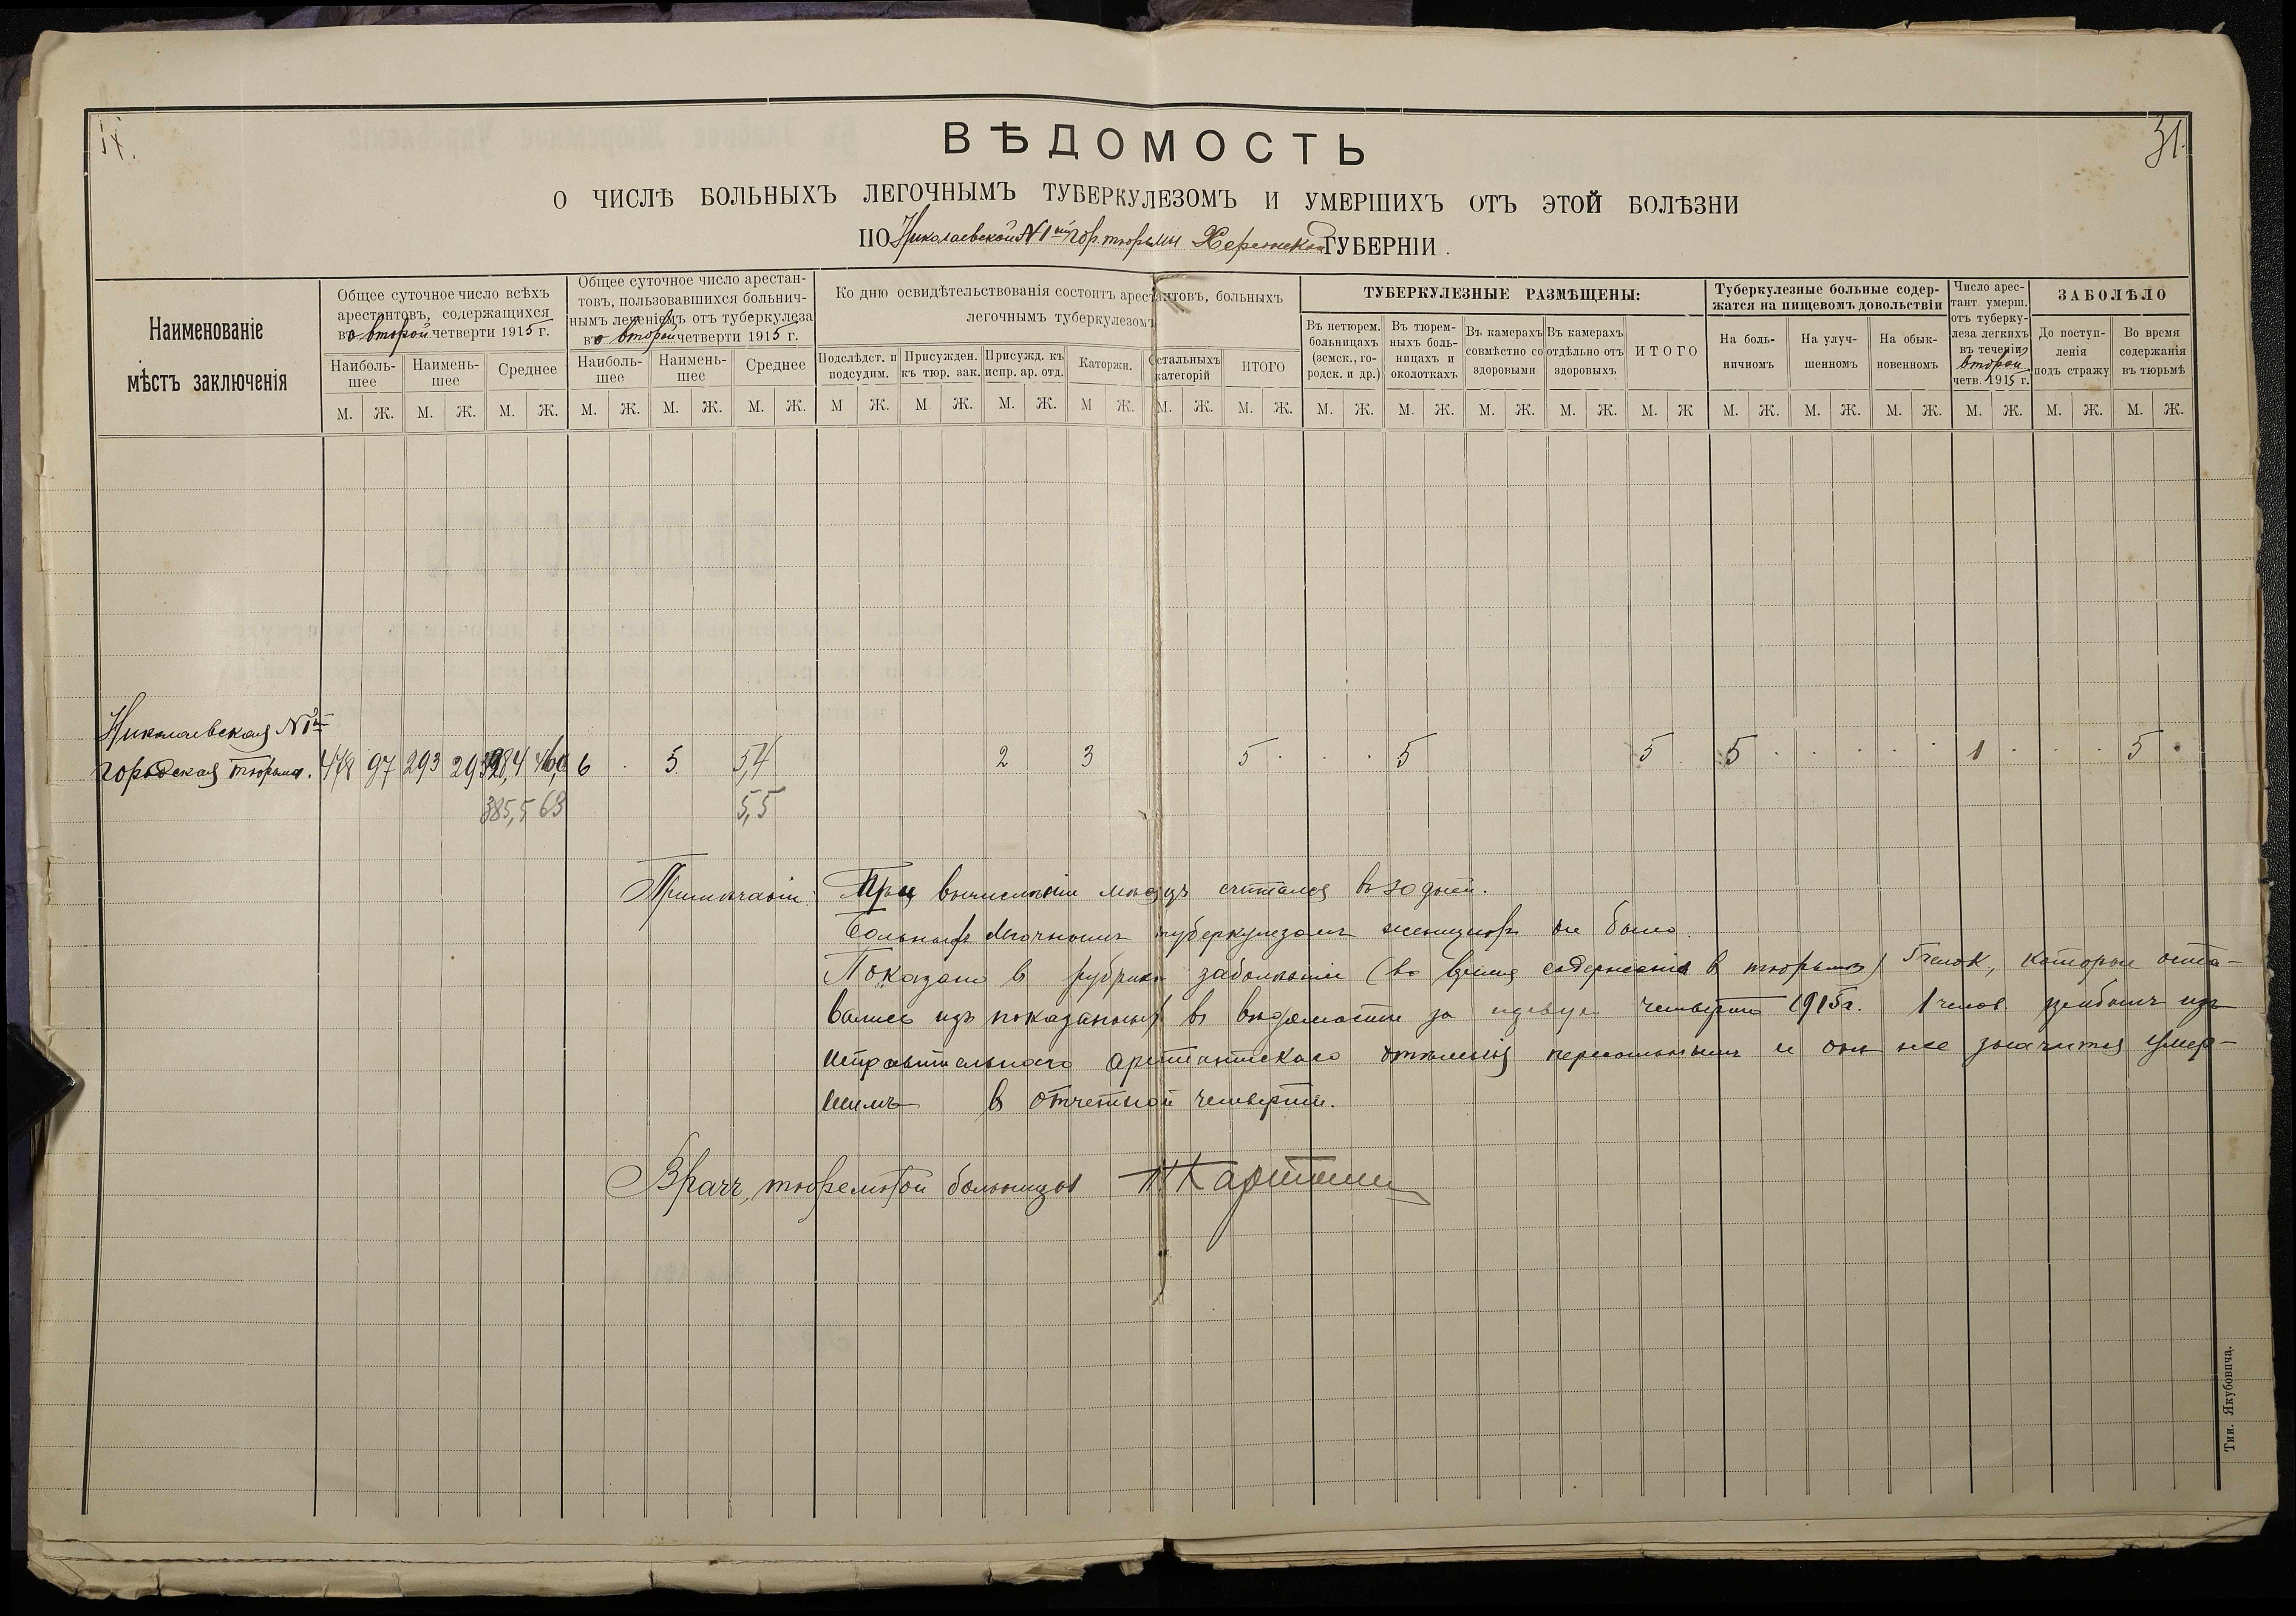 31.
ВѢДОМОСТЬ
О ЧИСЛѢ БОЛЬНЫХЪ ЛЕГОЧНЫМЪ ТУБЕРКУЛЕЗОМЪ И УМЕРШИХЪ ОТЪ ЭТОЙ БОЛѢЗНИ
ПО Николаевской №1ой гор. тюрьмы Херсонской ГУБЕРНІИ.
Наименованіе
мѣстъ заключенія
Общее суточное число всѣхъ
арестантовъ, содержащихся
во второй четверти 1915 г.
Наиболь-
шее
Наимень-
шее
Среднее
М. Ж. М. Ж. М. Ж.
Общее суточное число арестан-
товъ, пользовавшихся больнич-
нымъ леченіемъ отъ туберкулеза
во второй четверти 1915 г.
Наиболь-
шее
Наимень-
шее
Среднее
М. Ж. М. Ж. М. Ж.
Ко дню освидѣтельствованія состоитъ арестантовъ, больныхъ
легочнымъ туберкулезомъ
Подслѣдст. и
подсудим.
Присужден.
къ тюр. зак.
Присужд. къ
испр. ар. отд.
Каторжн.
Остальныхъ
категорій
ИТОГО
М Ж. М Ж. М. Ж. М Ж. М. Ж. М. Ж.
ТУБЕРКУЛЕЗНЫЕ РАЗМѢЩЕНЫ:
Въ нетюрем.
больницахъ
(земск., го-
родск. и др.)
Въ тюрем-
ныхъ боль-
ницахъ и
околоткахъ
Въ камерахъ
совмѣстно со
здоровыми
Въ камерахъ
отдѣльно отъ
здоровыхъ
ИТОГО
М. Ж. М. Ж. М. Ж. М. Ж. М. Ж
Туберкулезные больные содер-
жатся на пищевомъ довольствіи
На боль-
ничномъ
На улуч-
шенномъ
На обык-
новенномъ
М. Ж. М. Ж. М. Ж.
Число арес-
тант. умерш.
отъ туберку-
леза легкихъ
въ теченіи
второй
четв. 1915 г.
М. Ж.
ЗАБОЛѢЛО
До поступ-
ленія
подъ стражу
Во время
содержанія
въ тюрьмѣ
М. Ж. М. Ж.
Николаевская №1я
городская тюрьма. 448 97 293 6 5 5,4 2 3 5 5 5 5 1 5
385,5 63 5,5
Примѣчаніе: При вычисленіи мѣсяцъ считался въ 30 дней.
Больныхъ легочнымъ туберкулезомъ женщинъ не было.
Показано въ рубрикѣ заболѣвшіе (во время содержанія въ тюрьмѣ) 5 челов., которые оста-
вались изъ показанныхъ въ вѣдомости за первую четверть 1915 г. 1 челов. прибылъ изъ
исправительнаго арестантскаго отдѣленія пересыльнымъ и онъ же значится умер-
шимъ въ отчетной четверти.
Врачъ тюремной больницы
Тип. Якубовича.